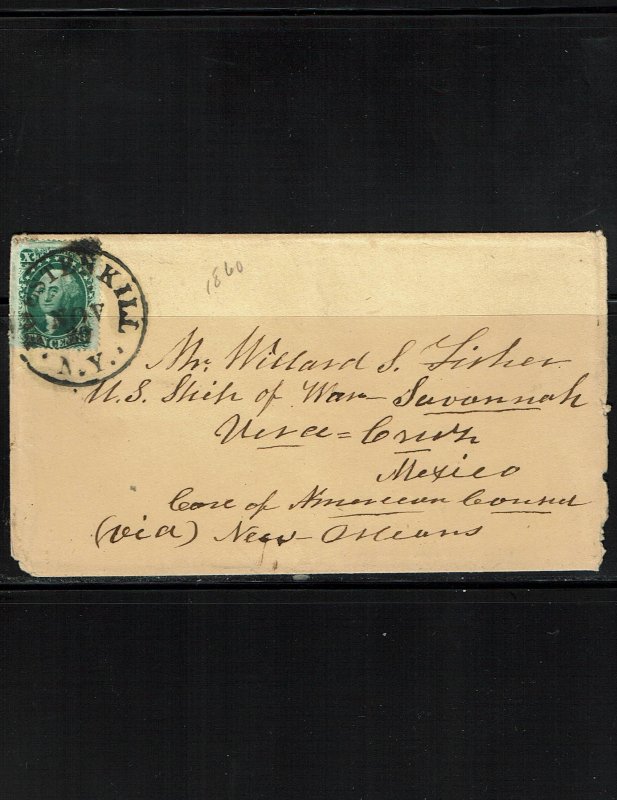 1860
WESTENKILL
NOV
N.Y.
X
TEN CENTS
Mr. Willard S. Fisher
U.S. Ship of War Savannah
Vera = Cruz
Mexico
Care of American Consul
(via) New Orleans